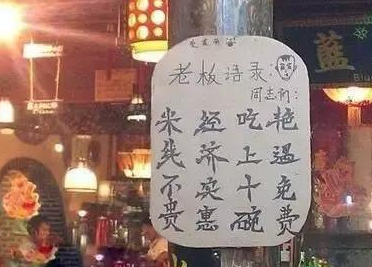 老板语录:
同志们:
米线不贵
经济实惠
吃上十碗
艳遇免费
藍